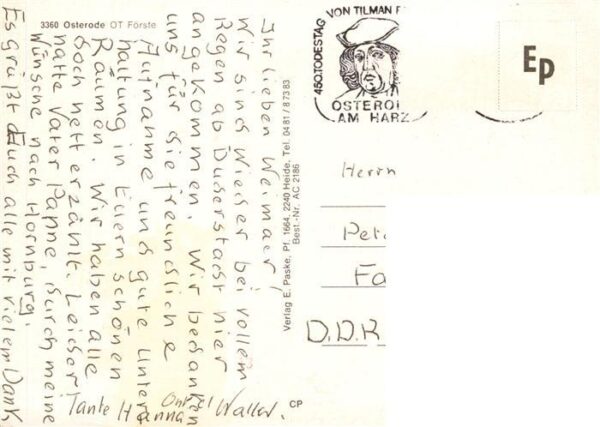 3360 Osterode OT Förste
Ihr lieben Weimaer!
Wir sind wieder bei vollem
Regen ab Duderstadt hier
angekommen. Wir bedanken
uns für die freundliche
Aufnahme und gute Unter
haltung in Euern schönen
Räumen. Wir haben alle
doch nett erzählt. Leider
hatte Vater Panne, durch meine
Wünsche nach Hornburg.
Es grüßt Euch alle mit vielem Dank
Tante Hanna Onkel Walter.
Verlag E. Paske, Pf. 1664, 2240 Heide, Tel. 0481/87383
Best.-Nr. AC 2186
CP
450.TODESTAG VON TILMAN
OSTERO
AM HARZ
Ep
Herrn
Pet
Fa
D.D.R